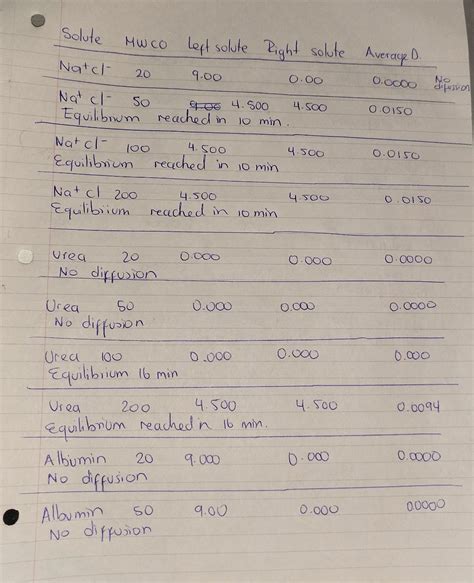 Solute MWCO Left solute Right solute Average D.
Na+ Cl- 20 9.00 0.00 0.0000 No diffusion
Na+ Cl- 50 9.00 4.500 4.500 0.0150
Equilibrium reached in 10 min.
Na+ Cl- 100 4.500 4.500 0.0150
Equilibrium reached in 10 min
Na+ Cl 200 4.500 4.500 0.0150
Equilibrium reached in 10 min
Urea 20 0.000 0.000 0.0000
No diffusion
Urea 50 0.000 0.000 0.0000
No diffusion
Urea 100 0.000 0.000 0.000
Equilibrium 16 min
Urea 200 4.500 4.500 0.0094
Equilibrium reached in 16 min.
Albumin 20 9.000 0.000 0.0000
No diffusion
Albumin 50 9.00 0.000 0.0000
No diffusion